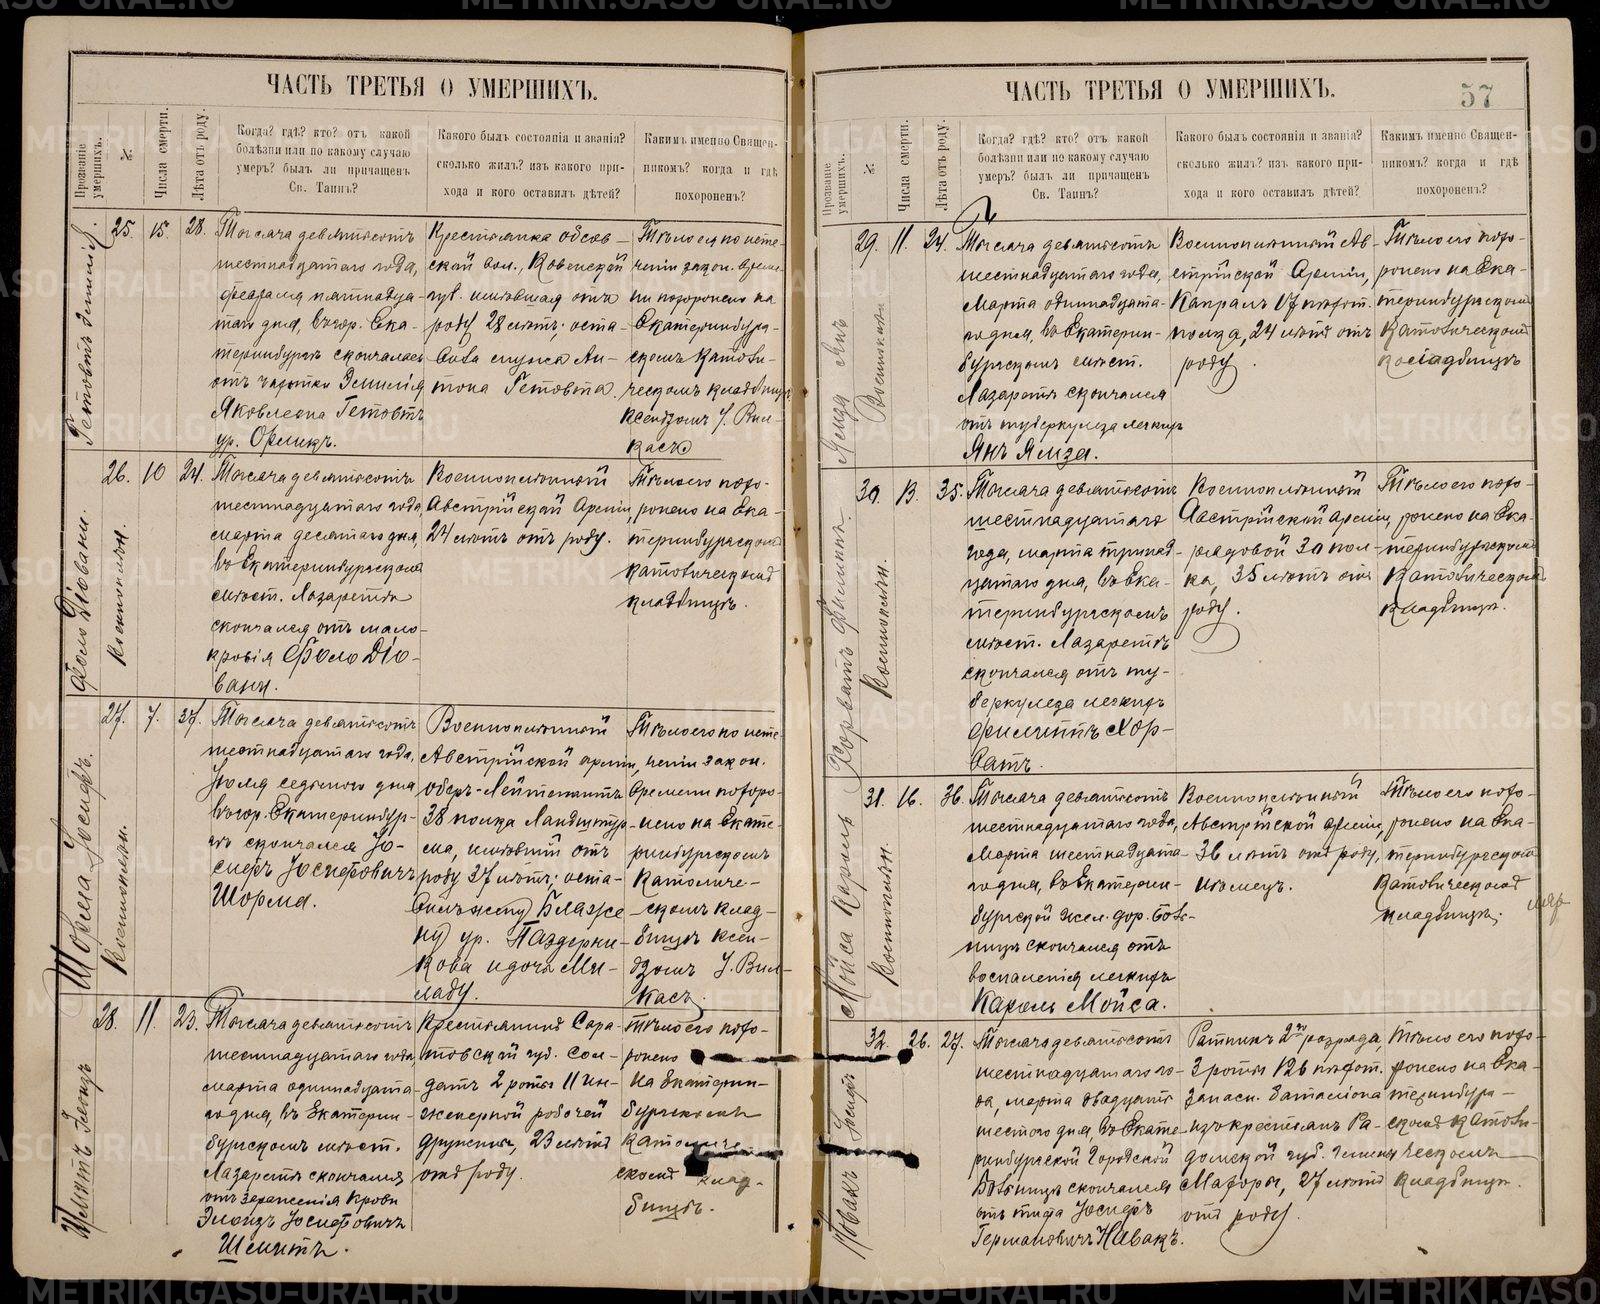 ЧАСТЬ ТРЕТЬЯ О УМЕРШИХЪ.
Прозваніе умершихъ.
№
Числа смерти.
Лѣта отъ роду.
Когда? гдѣ? кто? отъ какой
болѣзни или по какому случаю
умеръ? былъ ли причащенъ
Св. Таинъ?
Какого былъ состоянія и званія?
сколько жилъ? изъ какого при-
хода и кого оставилъ дѣтей?
Какимъ именно Священ-
никомъ? когда и гдѣ
похороненъ?
25.
15
28.
Тысяча девятьсотъ
шестнадцатаго года,
февраля пятнадца-
таго дня, въ гор. Ека-
теринбургѣ скончалась
отъ чахотки Эмилія
Яковлевна Гетовтъ
ур.
Крестьянка
вол., Ковенской
губ. имѣвшая отъ
роду 28 лѣтъ; оста-
вила мужа Ан-
тона Гетовта.
Тѣло ея по исте-
ченіи закон. време-
ни похоронено на
Екатеринбург-
скомъ Католи-
ческомъ кладбищѣ
Ксендзомъ І. Вил-
касъ
26.
10
24.
Фоло Діовани.
Военноплѣн.
Тысяча девятьсотъ
шестнадцатаго года
марта десятаго дня,
въ Екатеринбургскомъ
мѣст. Лазаретѣ
скончался отъ мало-
кровія Фоло Діо-
вани.
Военноплѣнный
Австрійской Арміи,
24 лѣтъ отъ роду.
Тѣло его похо-
ронено на Ека-
теринбургскомъ
католическомъ
кладбищѣ.
27.
7.
37.
Шорма Іосифъ.
Военноплѣн.
Тысяча девятьсотъ
шестнадцатаго года,
седьмого дня
въ гор. Екатеринбур-
гѣ скончался Іо-
сифъ Іосифовичъ
Шорма.
Военноплѣнный
Австрійской арміи,
оберъ-Лейтенантъ
38 полка Ландштур-
ма, имѣвшій отъ
роду 37 лѣтъ; оста-
вилъ жену Блаже-
ну ур. Паздерни-
кова и дочь Ми-
ладу.
Тѣло его по исте-
ченіи закон.
времени похоро-
нено на Екате-
ринбургскомъ
Католиче-
скомъ клад-
бищѣ ксен-
дзомъ І. Вил-
касъ.
28.
11.
23.
Тысяча девятьсотъ
шестнадцатаго года,
марта одиннадцата-
го дня, въ Екатерин-
бургскомъ мѣст.
Лазаретѣ скончался
отъ зараженія крови
Іосифовичъ
Шмитъ.
Крестьянинъ Сара-
товской губ. Сол-
датъ 2 роты 11 ин-
женерной рабочей
дружины, 23 лѣтъ
отъ роду.
Тѣло его похо-
ронено
на Екатерин-
бургскомъ
Католиче-
скомъ клад-
бищѣ.
ЧАСТЬ ТРЕТЬЯ О УМЕРШИХЪ.
57
Прозваніе умершихъ.
№
Числа смерти.
Лѣта отъ роду.
Когда? гдѣ? кто? отъ какой
болѣзни или по какому случаю
умеръ? былъ ли причащенъ
Св. Таинъ?
Какого былъ состоянія и званія?
сколько жилъ? изъ какого при-
хода и кого оставилъ дѣтей?
Какимъ именно Священ-
никомъ? когда и гдѣ
похороненъ?
29.
11.
24.
Ямза Янъ
Военноплѣн.
Тысяча девятьсотъ
шестнадцатаго года,
Марта одиннадцата-
го дня, въ Екатерин-
бургскомъ мѣст.
Лазаретѣ скончался
отъ туберкулеза легкихъ
Янъ Ямза.
Военноплѣнный Ав-
стрійской Арміи,
Капралъ 17 пѣхот.
полка, 24 лѣтъ отъ
роду.
Тѣло его похо-
ронено на Ека-
теринбургскомъ
Католическомъ
кладбищѣ
30.
13.
35.
Хорватъ Филиппъ
Военноплѣн.
Тысяча девятьсотъ
шестнадцатаго
года, марта тринад-
цатаго дня, въ Ека-
теринбургскомъ
мѣст. Лазаретѣ
скончался отъ ту-
беркулеза легкихъ
Филиппъ Хор-
ватъ.
Военноплѣнный
Австрійской арміи,
рядовой 30 пол-
ка, 35 лѣтъ отъ
роду.
Тѣло его похо-
ронено на Ека-
теринбургскомъ
Католическомъ
кладбищѣ.
31.
16.
36.
Мойса Кароль
Военноплѣн.
Тысяча девятьсотъ
шестнадцатаго года,
Марта шестнадцата-
го дня, въ Екатерин-
бургской жел. дор. боль-
ницѣ скончался отъ
воспаленія легкихъ
Кароль Мойса.
Военноплѣнный
Австрійской арміи,
36 лѣтъ отъ роду,
нѣмецъ.
Тѣло его похо-
ронено на Ека-
теринбургскомъ
Католическомъ
кладбищѣ.
32.
26.
27.
Новакъ Іосифъ
Тысяча девятьсотъ
шестнадцатаго го-
да, марта двадцать
шестого дня, въ Екате-
ринбургской Городской
больницѣ скончался
отъ тифа Іосифъ
Германовичъ Новакъ.
Ратникъ 2го разряда,
3 роты 126 пѣхот.
запасн. баталіона
изъ крестьянъ Ра-
домской губ. гмины
27 лѣтъ
отъ роду.
Тѣло его похо-
ронено на Ека-
теринбург-
скомъ Католи-
ческомъ
кладбищѣ.
METRIKI.GASO-URAL.RU